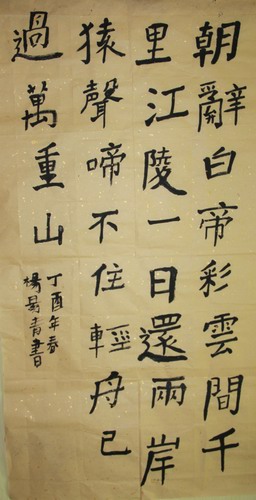 朝辭白帝彩雲間千
里江陵一日還兩岸
猿聲啼不住輕舟已
過萬重山
丁酉年春
楊青書